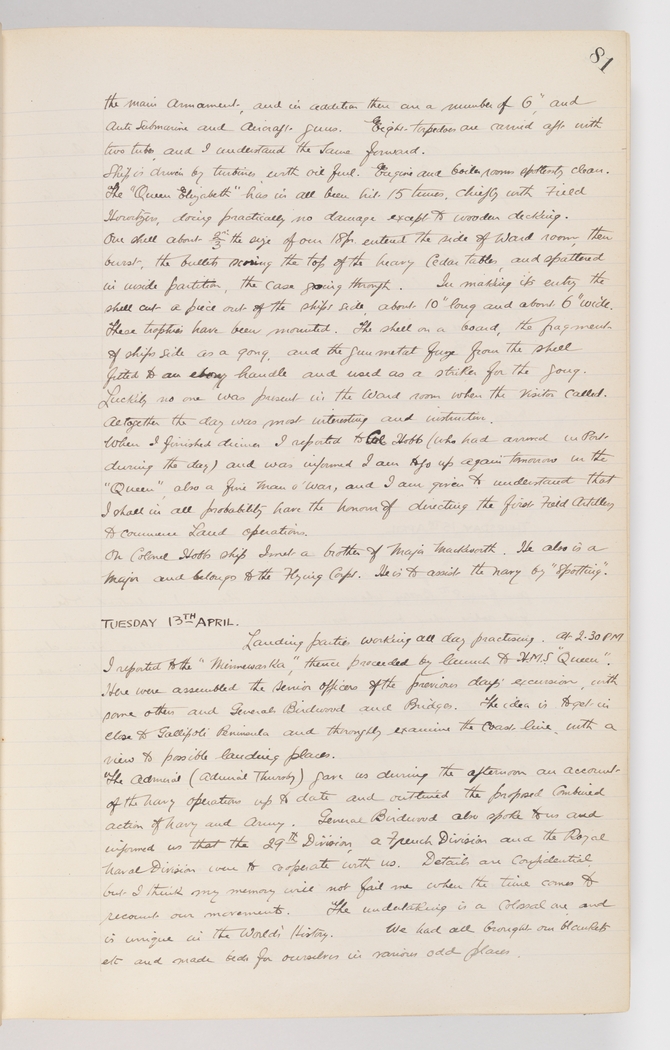 81
the main armament, and in addition there are a number of 6", and
Anti Submarine and Aircraft guns. Eight torpedoes are carried aft with
two tubes, and I understand the same forward.
Ship is driven by turbines with oil fuel. Engine and boiler rooms spotlessly clean.
The "Queen Elizabeth" has in all been hit 15 times, chiefly with Field
Howitzers, doing practically no damage except to wooden decking.
One shell about 2/3 the size of our 18pr. entered the side of Ward room, then
burst, the bullets scoring the top of the heavy Cedar tables, and spattered
in inside partition, the case going through. In making its entry the
shell cut a piece out of the ships side, about 10" long and about 6" wide.
These trophies have been mounted. The shell on a board, the fragment
of ships side as a gong, and the gunmetal fuze from the shell
fitted to an ebony handle and used as a striker for the gong.
Luckily no one was present in the Ward room when the visitor called.
Altogether the day was most interesting and instructive.
When I finished dinner I reported to Col Hobbs (who had arrived in Port
during the day) and was informed I am to go up again tomorrow in the
"Queen", also a fine man o' War, and I am given to understand that
I shall in all probability have the honour of directing the first Field Artillery
to commence Land operations.
On Colonel Hobbs ship I met a brother of Major Mackworth. He also is a
Major and belongs to the Flying Corps. He is to assist the navy by "Spotting".
TUESDAY 13TH APRIL.
Landing parties working all day practising. At 2-30 PM
I reported to the "Minnewaska", thence proceeded by launch to H.M.S "Queen".
Here were assembled the senior officers of the previous days excursion, with
some others and Generals Birdwood and Bridges. The idea is to get in
close to Gallipoli Peninsula and thoroughly examine the Coast line, with a
view to possible landing places.
The Admiral (Admiral Thursby) gave us during the afternoon an account
of the navy operations up to date and outlined the proposed Combined
action of Navy and Army. General Birdwood also spoke to us and
informed us that the 29th Division, a French Division and the Royal
Naval Division were to cooperate with us. Details are Confidential
but I think my memory will not fail me when the time comes to
recount our movements. The undertaking is a Colossal one and
is unique in the World's History. We had all brought our blankets
etc and made beds for ourselves in various odd places.